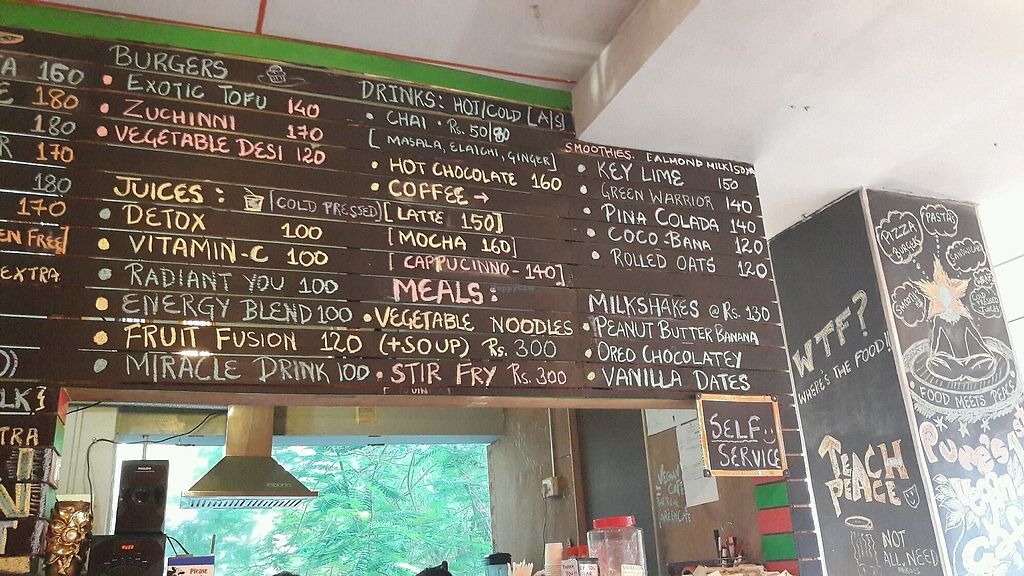 160
180
180
170
180
170
EN FREE]
EXTRA
LK}
TRA
BURGERS
• EXOTIC TOFU 140
• ZUCHINNI 170
• VEGETABLE DESI 120
JUICES: [COLD PRESSED]
• DETOX 100
• VITAMIN-C 100
• RADIANT YOU 100
• ENERGY BLEND 100
• FRUIT FUSION 120
• MIRACLE DRINK 100
DRINKS: HOT/COLD [A/S]
• CHAI • Rs. 50/80
[MASALA, ELAICHI, GINGER]
• HOT CHOCOLATE 160
• COFFEE →
[LATTE 150]
[MOCHA 160]
[CAPPUCINNO - 140]
MEALS:
• VEGETABLE NOODLES
(+SOUP) Rs. 300
• STIR FRY Rs. 300
SMOOTHIES: [ALMOND MILK/SOYA
• KEY LIME 150
• GREEN WARRIOR 140
• PINA COLADA 140
• COCO-BANA 120
• ROLLED OATS 120
MILKSHAKES @ Rs. 130
• PEANUT BUTTER BANANA
• OREO CHOCOLATEY
• VANILLA DATES
SELF
SERVICE
WTF?
WHERE'S THE FOOD!
TEACH
PEACE
NOT
ALL NEED
PIZZA
BURGER
PASTA
SANDWICH
COLD
PRESSED
JUICE
FOOD MEETS PEACE
PUNE'S
VEGAN
PHILIPS
Please
HappyCow